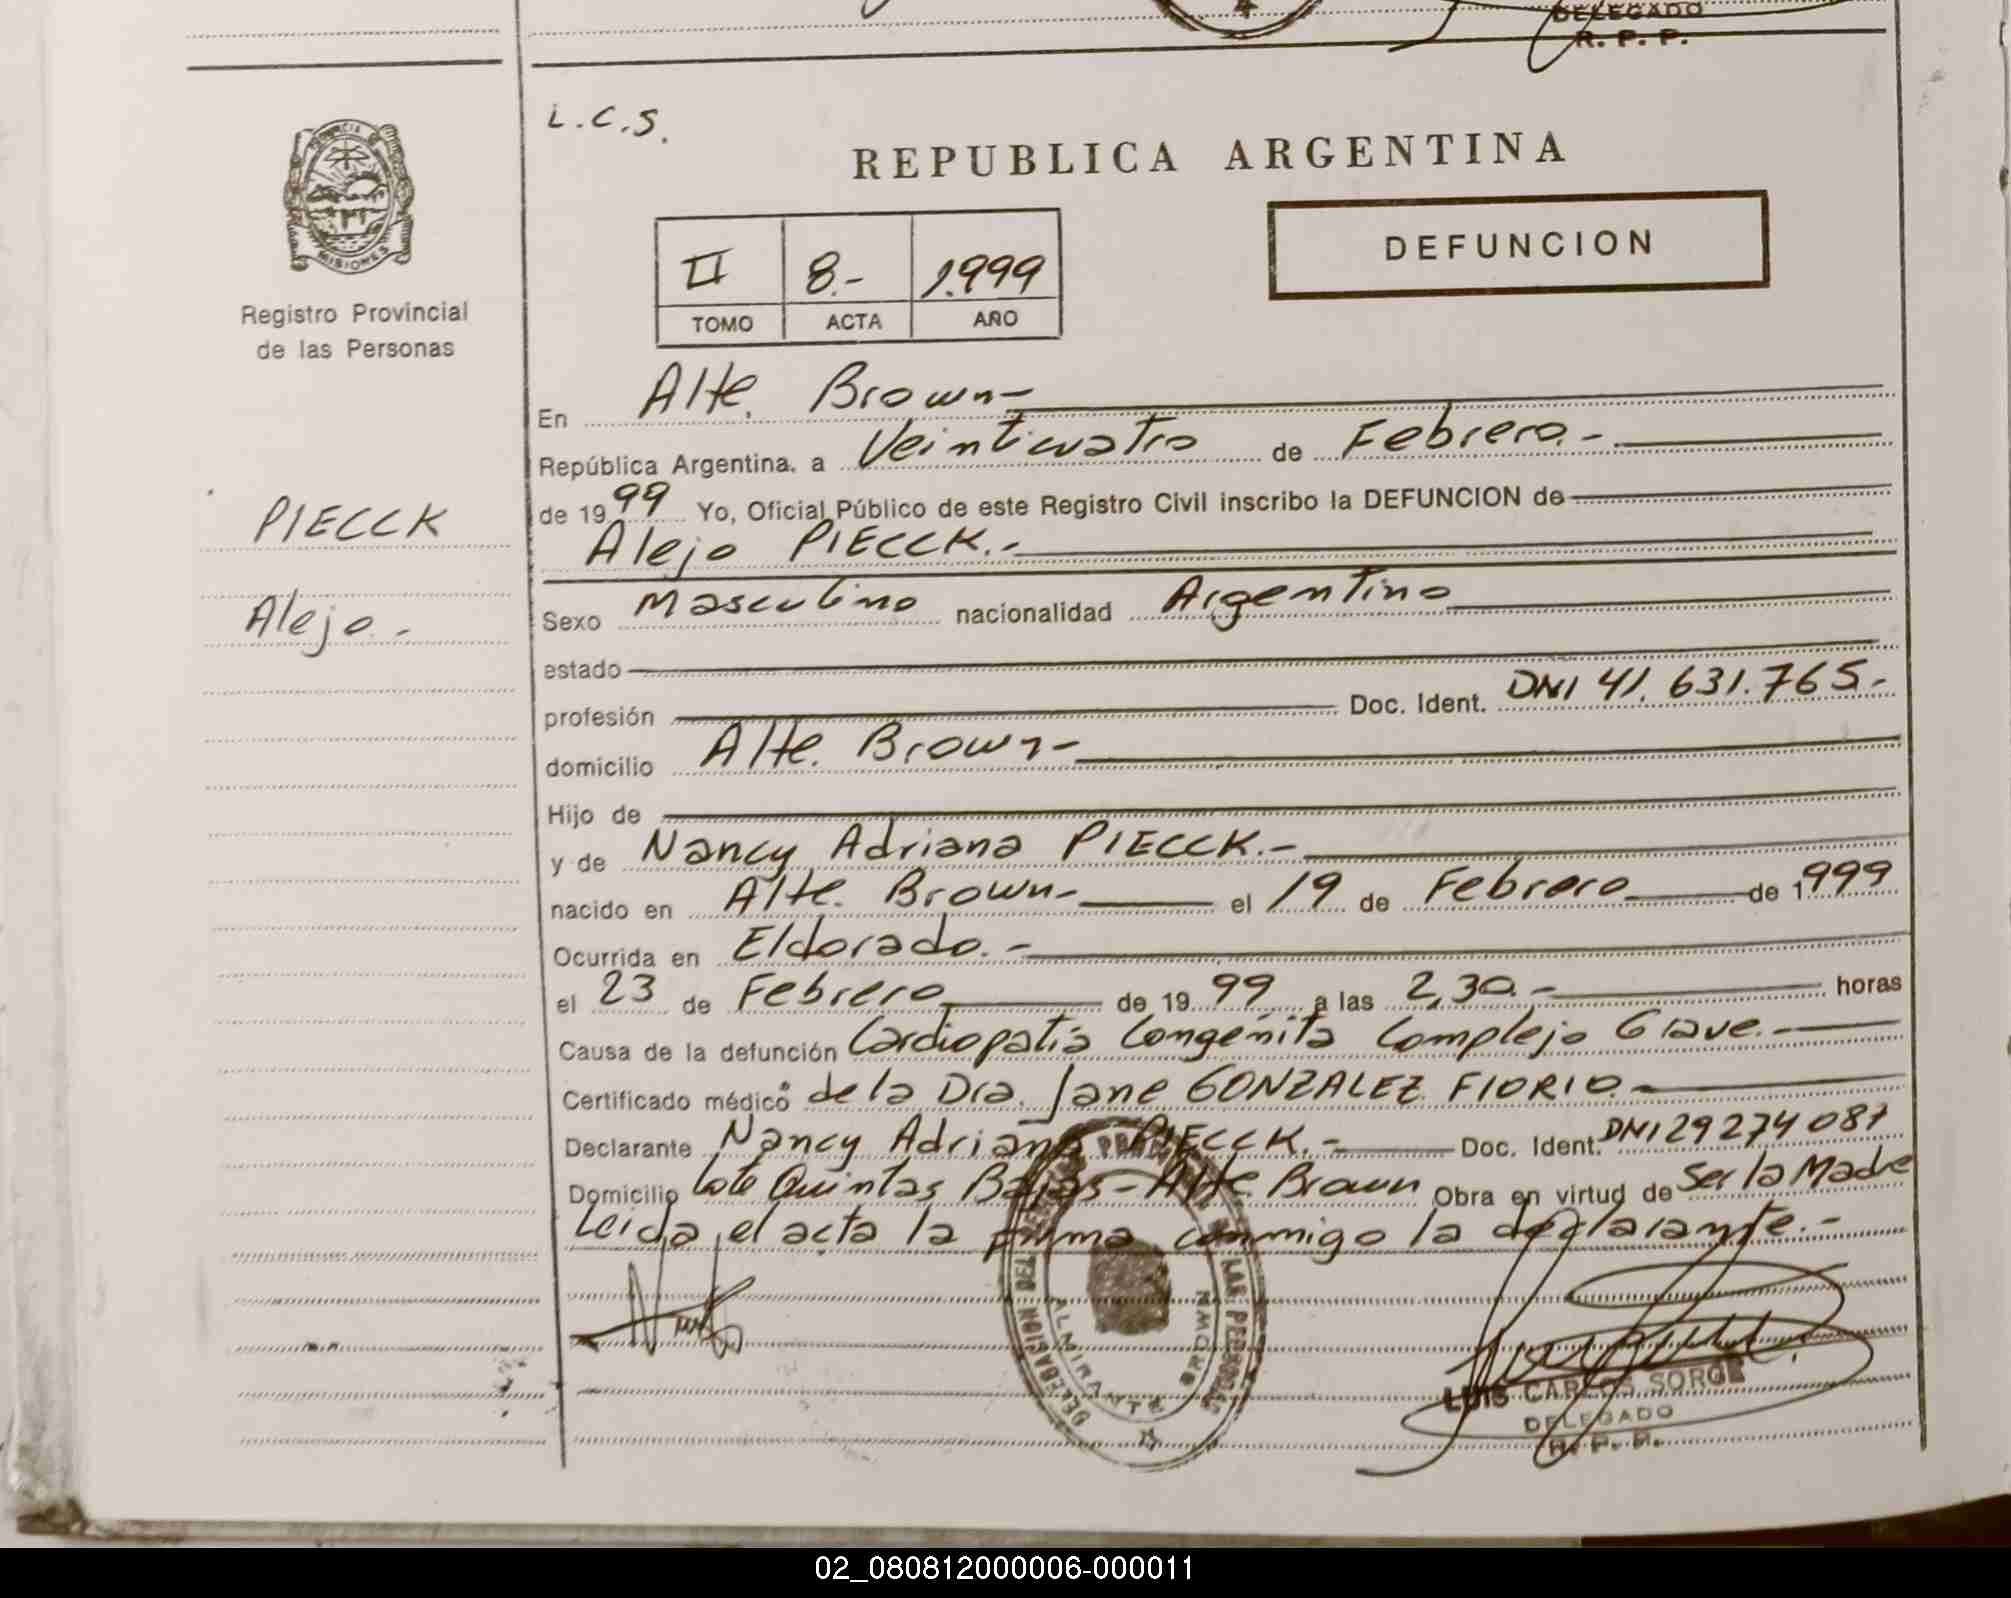 DELEGADO
R. P. P.
L.C.S.
PROVINCIA DE
MISIONES
Registro Provincial
de las Personas
REPUBLICA ARGENTINA
DEFUNCION
II 8.- 1.999
TOMO ACTA AÑO
En Alte. Brown-
República Argentina, a Veinticuatro de Febrero.-
de 1999 Yo, Oficial Público de este Registro Civil inscribo la DEFUNCION de
PIECCK
Alejo PIECCK.-
Alejo.-
Sexo Masculino nacionalidad Argentino
estado
profesión Doc. Ident. DNI 41.631.765.-
domicilio Alte. Brown-
Hijo de
y de Nancy Adriana PIECCK.-
nacido en Alte. Brown- el 19 de Febrero de 1999
Ocurrida en Eldorado.-
el 23 de Febrero de 1999 a las 2,30.- horas
Causa de la defunción Cardiopatía Congénita Complejo Grave.-
Certificado médico de la Dra. Jane GONZALEZ FIORIO.-
Declarante Nancy Adriana PIECCK.- Doc. Ident. DNI 29274087
Domicilio Lote Quintas Bajas-Alte Brown Obra en virtud de Ser la Madre
Leida el acta la firma conmigo la declarante.-
DELEGACION DEL REGISTRO PROVINCIAL DE LAS PERSONAS
ALMIRANTE BROWN
LUIS CARLOS SORGE
DELEGADO
R. P. P.
02_080812000006-000011